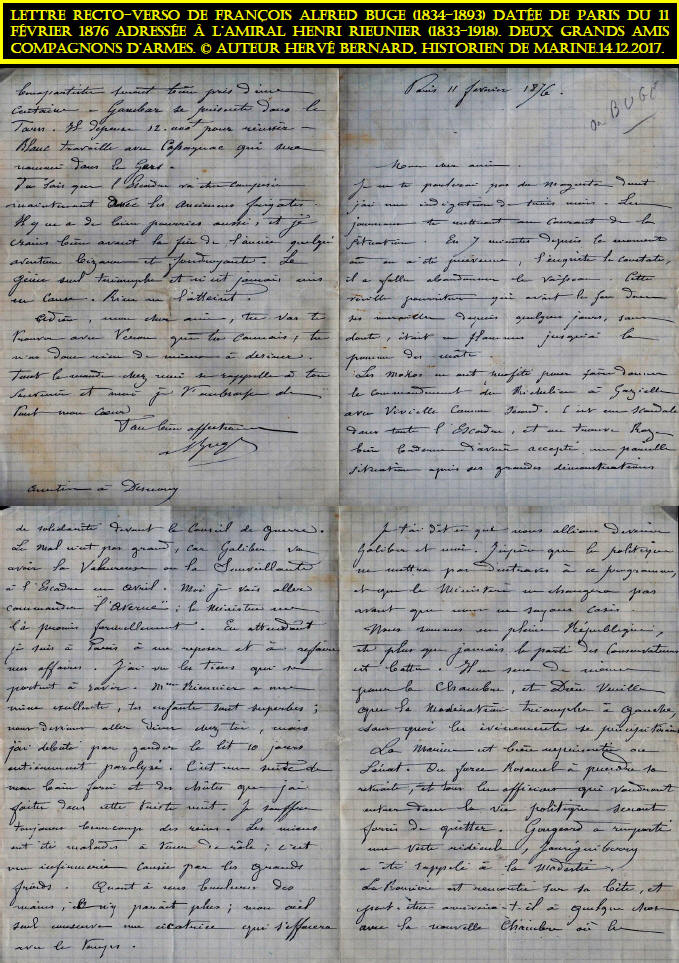 LETTRE RECTO-VERSO DE FRANÇOIS ALFRED BUGE (1834-1893) DATÉE DE PARIS DU 11
FÉVRIER 1876 ADRESSÉE À L'AMIRAL HENRI RIEUNIER (1833-1918). DEUX GRANDS AMIS
COMPAGNONS D'ARMES. © AUTEUR HERVÉ BERNARD, HISTORIEN DE MARINE.14.12.2017.
Paris 11 février 1876.
de BUGE
Mon cher ami
Je ne te parlerai pas du Magenta dont
j'ai une indigestion de trois mois. Les
journaux te mettront au courant de la
situation. En 7 minutes depuis le moment
où on a été prévenu, l'enquête le constate,
il a fallu abandonner le vaisseau. Cette
vieille pourriture qui avait le feu dans
ses murailles depuis quelques jours, sans
doute, était en flammes jusqu'à la
pomme des mâts
Les Mokos en ont profité pour faire donner
le commandement du Richelieu à
avec Vivielle comme second. C'est un scandale
dans tout l'Escadre, et on trouve
bien d'avoir accepté une pareille
situation après ses grandes démonstrations
de solidarité devant le Conseil de Guerre.
Le mal n'est pas grand, car Galiber va
avoir la Valeureuse ou la Surveillante
à l'Escadre en avril. Moi je vais aller
commander l'Averne : le Ministre me
l'a promis formellement. En attendant
je suis à Paris à me reposer et à refaire
mes affaires. J'ai vu les tiens qui se
portent à ravir. Mme Rieunier a une
mine excellente, tes enfants sont superbes ;
nous devions aller dîner chez toi, mais
j'ai débuté par garder le lit 10 jours
entièrement paralysé. C'est une suite de
mon bain forcé et des chutes que j'ai
faites dans cette triste nuit. Je souffre
toujours beaucoup des reins. Les miens
ont été malades à tour de rôle ; c'est
une infirmerie causée par les grands
froids. Quant à mes brûlures des
mains, il n'y paraît plus ; mon œil
seul conserve une cicatrice qui s'effacera
avec le temps.
Je t'ai dit ce que nous allions devenir
Galiber et moi. J'espère que la politique
ne mettra pas d'entraves à ce programme,
et que le Ministère ne changera pas
avant que nous ne soyons casés.
Nous sommes en pleine République,
et plus que jamais le parti des conservateurs
est battu. Il en sera de même
pour la Chambre, et Dieu veuille
que la modération triomphe à gauche,
sans quoi les événements se précipiteraient
La Marine est bien représentée au
Sénat. On force Rosamel à prendre sa
retraite, et tous les officiers qui voudront
entrer dans la vie politique seront
forcés de quitter. Gougeard a remporté
une veste ridicule. Jauréguiberry
a été rappelé à la modestie.
La Roncière est remonté sur sa bête, et
peut-être arrivera-t-il à quelque chose
avec la nouvelle Chambre où les
Bonapartistes seront bien près d'une
centaine. Gambar se présente dans le
Tarn. Il dépense 12.000f pour réussir.
Blanc travaille avec Cassagnac qui sera
nommé dans le Gers.
Tu sais que l'Escadre va être composée
maintenant avec les anciennes frégates.
Il y en a de bien pourries aussi, et je
crains bien avant la fin de l'année quelque
aventure bizarre et foudroyante. Le
Génie seul triomphe et n'est jamais mis
en cause. Rien ne l'atteint.
mon cher ami, tu vas te
trouver avec Veron que tu connais ; tu
n'as donc rien de mieux à désirer.
Tout le monde chez moi se rappelle à ton
souvenir et moi je t'embrasse de
tout mon cœur
Ton bien affectionné
ABuge
à Desnouy